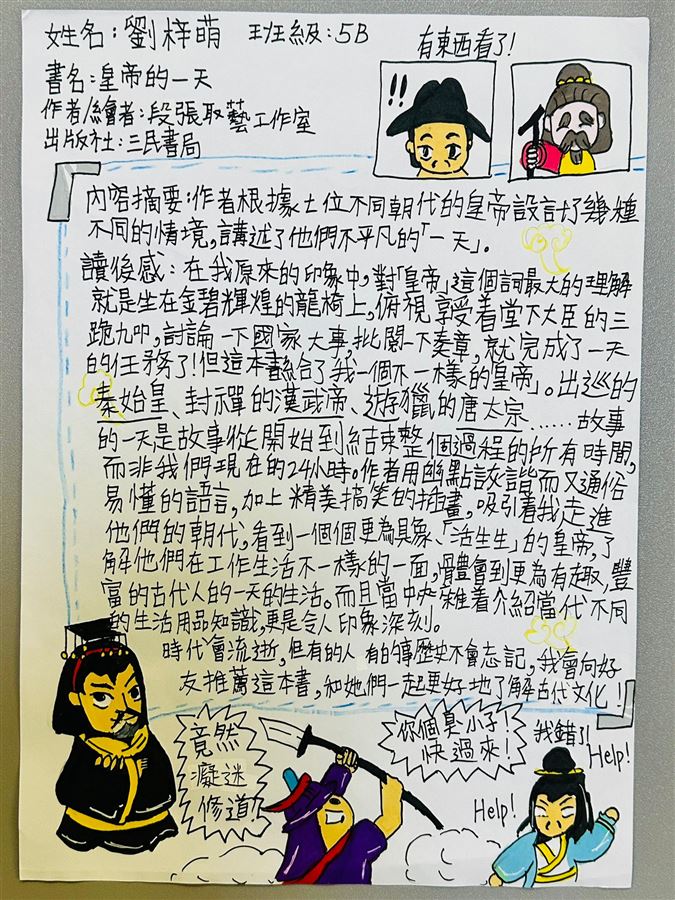 姓名:劉梓萌 班級:5B
有東西看了!
書名:皇帝的一天
作者/繪者:段張取藝工作室
出版社:三民書局
!!
內容摘要:作者根據七位不同朝代的皇帝設計了幾種
不同的情境,講述了他們不平凡的「一天」。
讀後感:在我原來的印象中,對「皇帝」這個詞最大的理解
就是坐在金碧輝煌的龍椅上,俯視享受着堂下大臣的三
跪九叩,討論一下國家大事,批閱一下奏章,就完成了一天
的任務了!但這本書給了我一個不一樣的皇帝」。出巡的
秦始皇、封禪的漢武帝、遊獵的唐太宗……故事
的一天是故事從開始到結束整個過程的所有時間,
而非我們現在的24小時。作者用幽點詼諧而又通俗
易懂的語言,加上精美搞笑的插畫,吸引着我走進
他們的朝代,看到一個個更為具象、「活生生」的皇帝,了
解他們在工作生活不一樣的一面,體會到更為有趣,豐
富的古代人的一天的生活。而且當中夾雜着介紹當代不同
的生活用品知識,更是令人印象深刻。
時代會流逝,但有的人 有的事歷史不會忘記,我會向好
友推薦這本書,和她們一起更好地了解古代文化!
竟然
癡迷
修道!
你個臭小子!
快過來!
我錯了
Help!
Help!